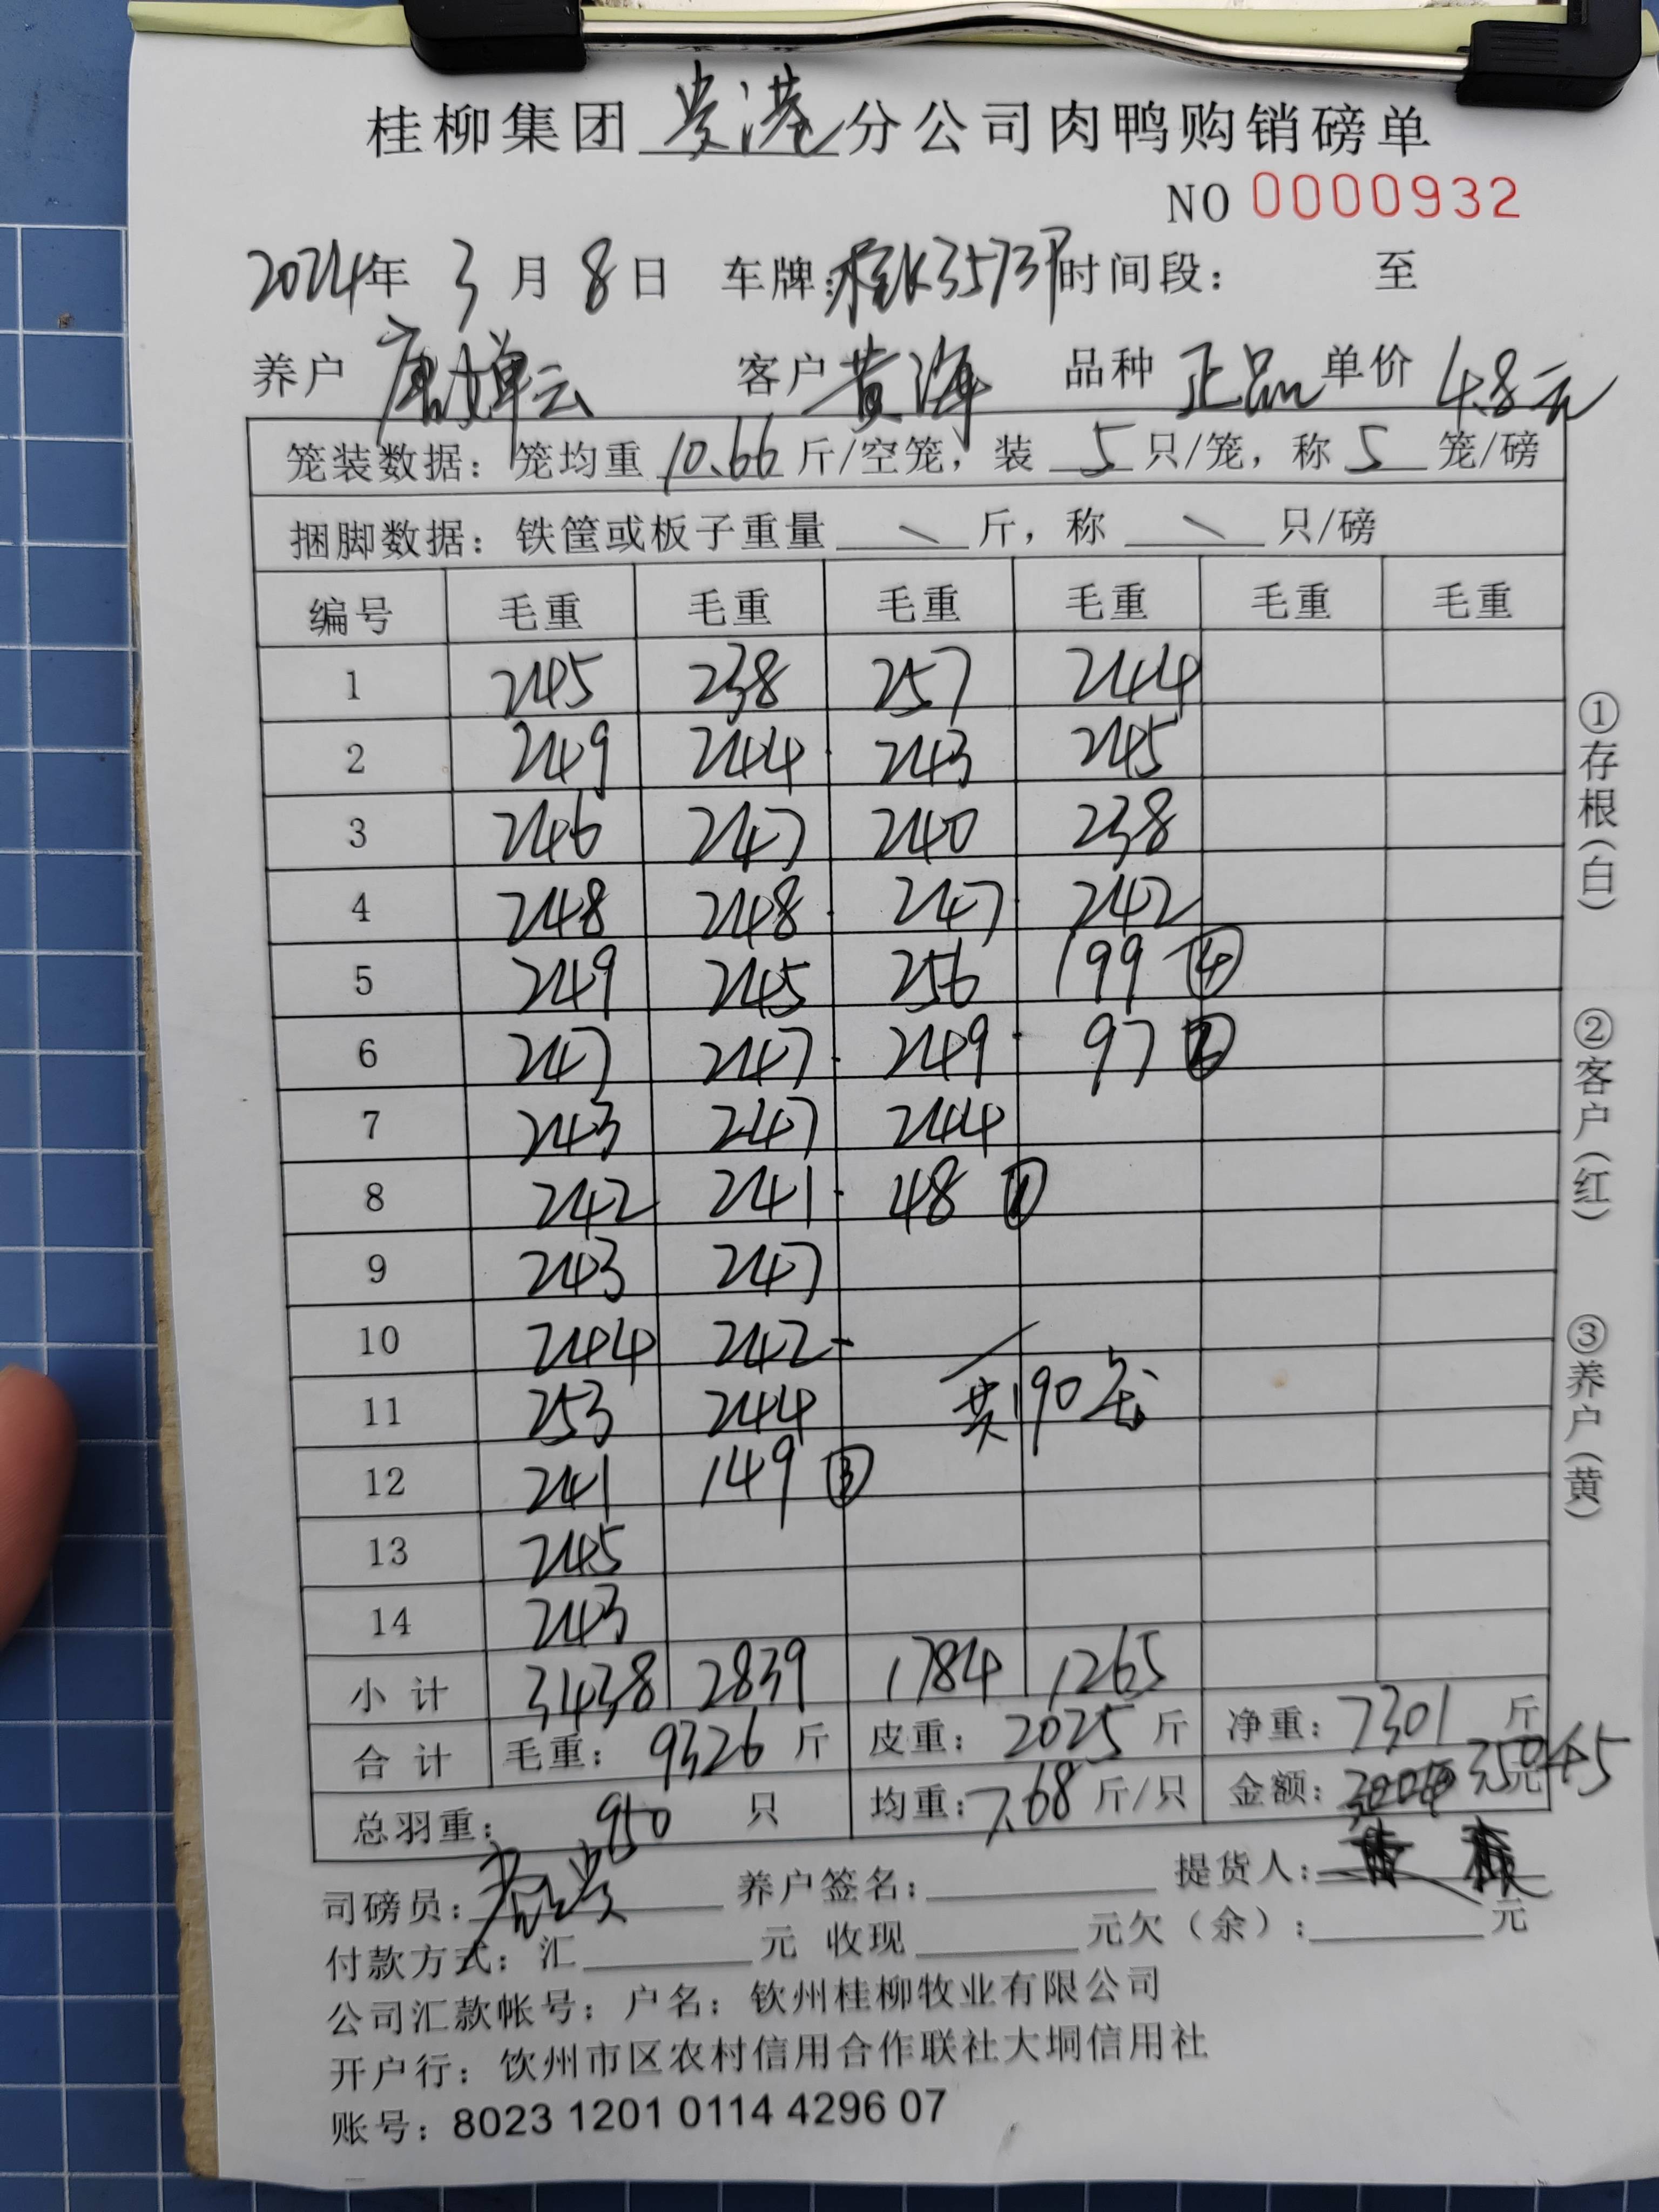 桂柳集团 贵港 分公司肉鸭购销磅单
NO 0000932
2024年 3 月 8 日 车牌: 桂K3573P 时间段: 至
养户 唐婵云 客户 黄海 品种 正品 单价 4.8元
笼装数据: 笼均重 10.66 斤/空笼, 装 5 只/笼, 称 5 笼/磅
捆脚数据: 铁筐或板子重量 \ 斤, 称 \ 只/磅
编号 毛重 毛重 毛重 毛重 毛重 毛重
1 245 238 257 244
2 249 244 243 245
3 246 247 240 238
4 248 248 247 242
5 249 245 256 199 ④
6 247 247 249 97 ②
7 243 247 244
8 242 241 48 ①
9 243 247
10 244 242
11 253 244 共190笼
12 241 149 ③
13 245
14 243
小计 3438 2839 1784 1265
合计 毛重: 9326 斤 皮重: 2025 斤 净重: 7301 斤
总羽重: 950 只 均重: 7.68 斤/只 金额: 35045 元
司磅员: 养户签名: 提货人:
付款方式: 汇 元 收现 元欠(余): 元
公司汇款帐号: 户名: 钦州桂柳牧业有限公司
开户行: 钦州市区农村信用合作联社大垌信用社
账号: 8023 1201 0114 4296 07
①存根(白)
②客户(红)
③养户(黄)